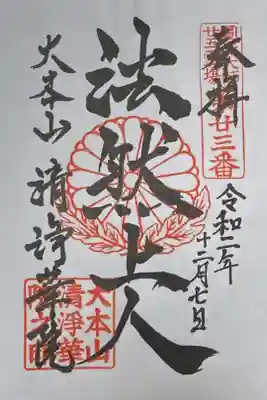 奉拝
廿三番
令和二年
十二月七日
法然上人
大本山 清浄華院
大本山
清淨華
院之印